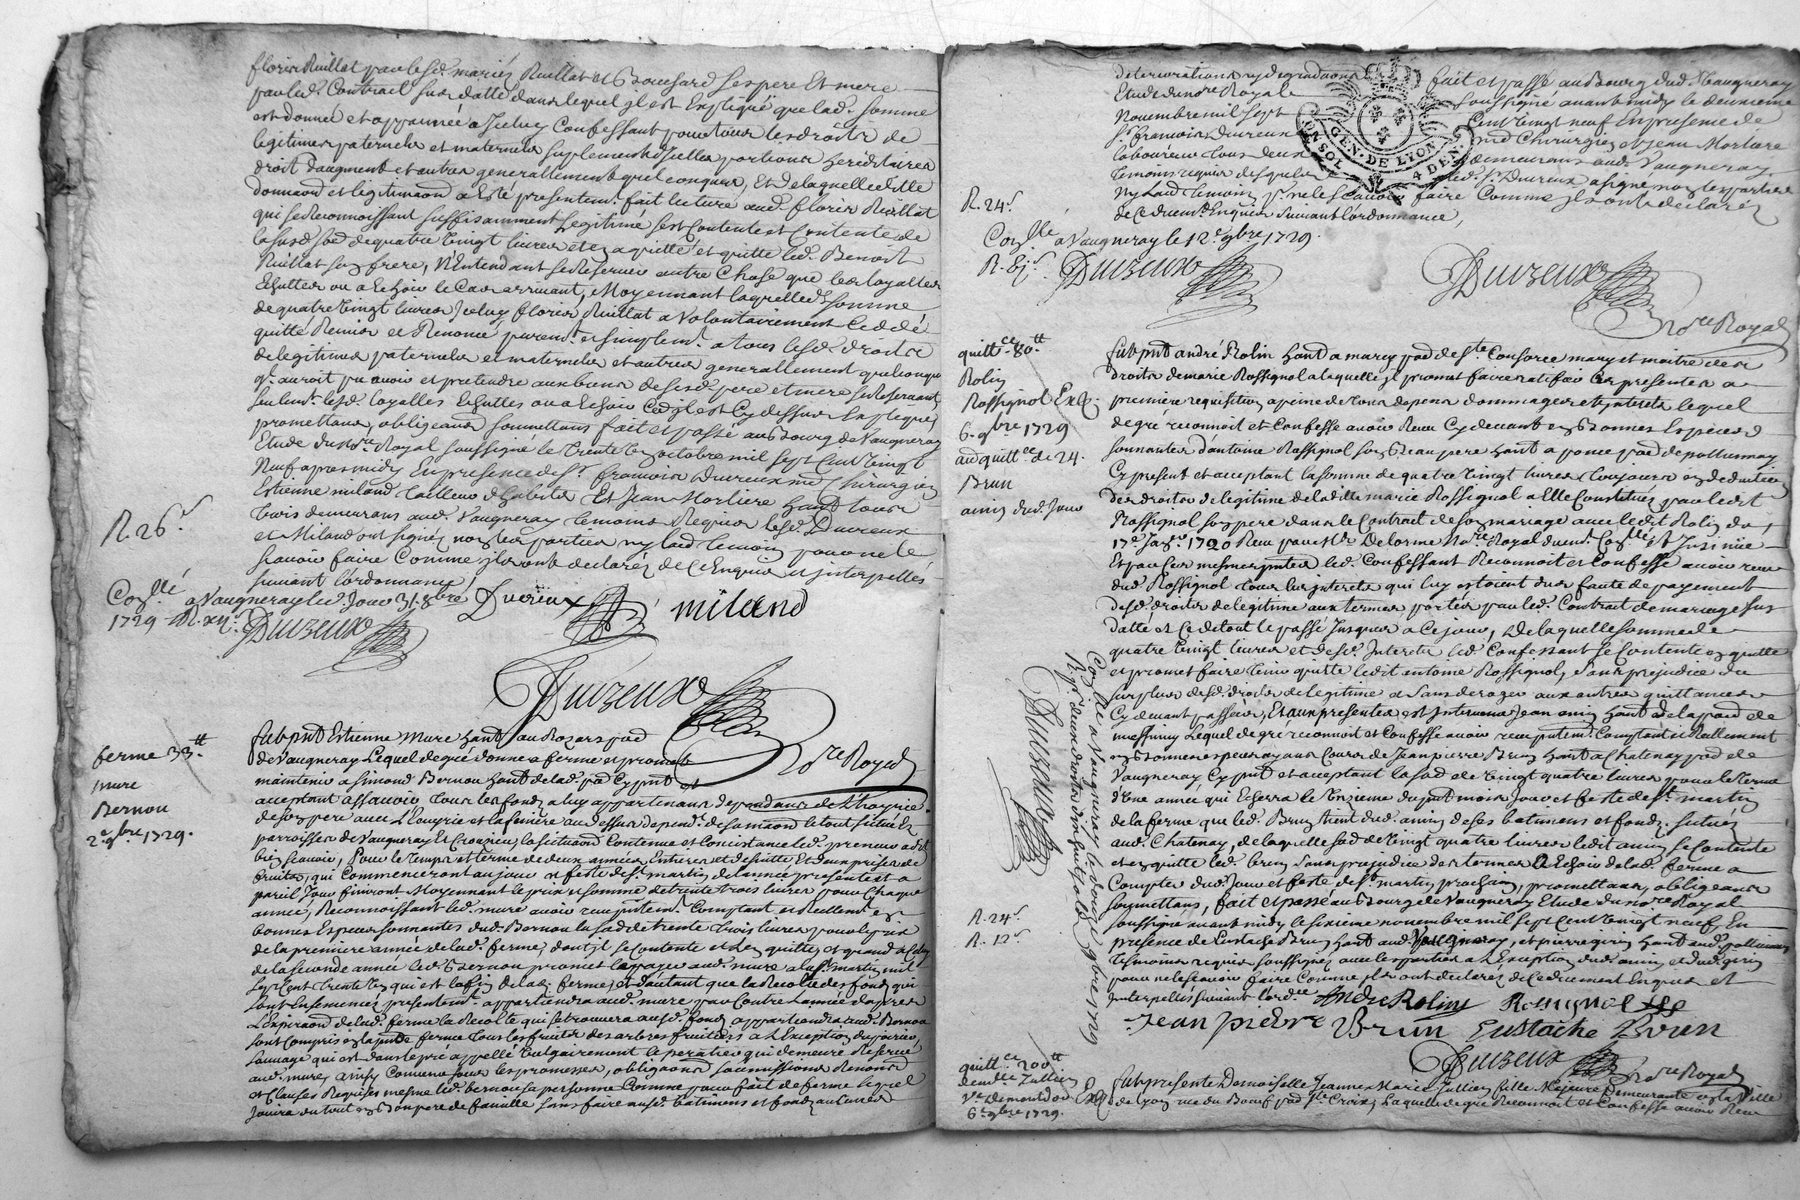 florir Ruillat par lesd. mariez Ruillat et Bouchard ses pere et mere
par led. Contrat susdatté dans lequel il est expliqué que lad. somme
est donnée et appanée a iceluy Confessant pour tous les droits de
legitimes paternels et maternels suplement d'icelles portions hereditaires
droit d'augment et autres generallement quelconques, et de laquelle ditte
donnaon et legitimaon a esté presentem. fait lecture aud. florir Ruillat
qui se Reconnoissant suffisamment legitimé s'est Contenté et Contente de
la susd. so. de quatre vingt livres et en a quitté et quitte led. Benoit
Ruillat son frere, n'Entendant se Reserver autre Chose que les loyalles
Echuttes ou a Echoir le Cas arrivant, Moyennant laquelle d. somme
de quatre vingt livres iceluy florir Ruillat a volontairement Ceddé
quitté Remis et Renoncé purem. et simplem. a tous lesd. droits
de legitimes paternels et maternels et autres generallement quelconques
qu'il auroit pu avoir et pretendre aux biens de sesd. pere et mere se Reservant
seulem. lesd. loyalles Echuttes ou a Echoir Co. il est Cy dessus Expliqué
promettans, obligeans soumettans fait et passé au Bourg de Vaugneray
Etude du no.re Royal soussigné le trente un octobre mil sept cent vingt
Neuf apres midy En presence de s.r françois Duvreux m.e Chirurgien
Estienne miland tailleur d'habits Et Jean Morliere habt. tous
trois demeurans aud. Vaugneray temoins Requis lesd. Duvreux
et Miland ont signez non les parties ny led. temoin pour ne le
scavoir faire Comme ils ont declarez de Ce Enquis et interpellés
suivant l'ordonnance
R. 26.s
Con.llé a Vaugneray led. Jour 31. 8bre
1729 R. xii.s
Duvreux
miland
Duvreux
No.re Royal
ferme 33.tt
mure
Bernou
2e 9bre 1729.
fut pnt Estienne Mure habt. au Rozars pad
de Vaugneray Lequel de gré donne a ferme et promet
maintenir a Simond Bernou habt. de lad. pad Cy pnt et
acceptant assavoir tous les fonds a luy appartenans
de son pere
parroisses de Vaugneray et Craponne
bien scavoir, Pour le temps et terme de deux années Entieres et de suitte Et d'une prise de
fruits, qui Commenceront au jour et feste de st. martin de l'année presente et a
pareil Jour finiront Moyennant le prix et somme de trente trois livres pour Chaque
année, Reconnoissant led. mure avoir receu pntem. Comptant et Reellem. en
bonnes Especes sonnantes dud. Bernou la so. de trente trois livres pour le prix
de la premiere année de lad. ferme, dont il se Contente et l'en quitte, et quand a Celuy
de la seconde année led. Bernou promet le payer aud. mure a la st. martin mil
sept cent trente un qui est la fin de lad. ferme, et d'autant que la Recolte des fonds qui
sont Ensemencez presentem. appartiendra aud. mure par Contre l'année d'apres
l'Expiraon de lad. ferme la Recolte qui se trouvera ausd. fonds appartiendra aud. Bernou
sont Compris en la pnte ferme tous les fruits des arbres fruitiers a l'Exception du poirier
sauvage qui est dans le pré appellé vulgairement le peratier qui demeure Reservé
aud. mure, ainsy Convenu sous les promesses, obligaons soumissions Renonc.
et Clauses Requises mesme led. bernou sa personne Comme pour fait de ferme lequel
Jouira du tout en Bon pere de famille sans faire ausd. batimens et fonds aucunes
deteriorations ny degradaons fait et passé au Bourg dud. Vaugneray
Etude du no.re Royale soussigné avant midy le deuxieme
Novembre mil sept Cent vingt neuf En presence de
s.r françois Duvreux m.e Chirurgien et jean Morliere
laboureur tous deux demeurans aud. Vaugneray
temoins requis desquels led. s.r Duvreux a signé non les parties
ny led. temoin p.r ne le scavoir faire Comme ils ont declarés
de Ce duem. Enquis suivant l'ordonnance,
GEN. DE LYON
4 DEN.
R. 24.s
Con.llé a Vaugneray le 12.e 9bre 1729.
Duvreux
Duvreux
No.re Royal
quitt.ce 80.tt
Rolin
Rossignol Exp.
6. 9bre 1729
aud quitt.ce de 24.
Brun
amin dud. Jour
fut pnt andré Rolin habt. a marcy pad de ste. Consorce mary et maitre des
droits de marie Rossignol a laquelle il promet faire ratifier Ces presentes a
premiere requisition a peine de tous depens dommages et interets lequel
de gré reconnoit et Confesse avoir Receu Cy devant en Bonnes Especes
sonnantes d'antoine Rossignol son Beau pere habt. a ponce pad de pollionnay
Cy present et acceptant la somme de quatre vingt livres tousjours en deduction
des droits de legitime de la ditte marie Rossignol a Elle Constituez par ledit
Rossignol son pere dans le Contrat de son mariage avec ledit Rolin du
17.e Janv. 1720 Receu par m.e Delorme No.re Royal duem. Con.llé et Insinué
Et par Ces mesmes pntes led. Confessant Reconnoit et Confesse avoir receu
dud. Rossignol tous les interets qui luy estoient dus faute de payement
desd. droits de legitime aux termes portés par led. Contrat de mariage sus
datté et Ce de tout le passé Jusques a Ce jour, De laquelle somme de
quatre vingt livres et desd. Interets led. Confessant se Contente en quitte
et promet faire tenir quitte ledit antoine Rossignol, sans prejudice du
surplus desd. droits de legitime et sans deroger aux autres quittances
Cy devant passées, Et aux presentes est Intervenu Jean amin habt. de la pad de
messimy Lequel de gré reconnoit et Confesse avoir receu pntem. Comptant et Reellement
en bonnes especes ayans Cours de Jean pierre Brun habt. a Chatenay pad de
Vaugneray Cy pnt et acceptant la so. de vingt quatre livres pour le terme
d'Une année qui Echerra le Onzieme du pnt mois jour et feste de st. martin
de la ferme que led. Brun tient dud. amin de ses batimens et fonds situez
aud. Chatenay, de laquelle so. de vingt quatre livres ledit amin se Contente
et en quitte led. brun sans prejudice des termes a Echoir de lad. ferme a
Compter dud. Jour et feste de st. martin prochain, promettans, obligeans
soumettans, fait et passé au Bourg de Vaugneray Etude du no.re Royal
soussigné avant midy le sixieme novembre mil sept Cent vingt neuf En
presence de Eustache Brun habt. aud. Vaugneray, et pierre girin habt. aud. pollionnay
temoins requis soussignés avec les parties a l'Exception dud. amin et dud. girin
pour ne le scavoir faire Comme ils ont declarés de Ce duement Enquis et
Interpellés suivant l'ord.ce
Andre Rolin Rosignol
Jean pierre Brun Eustache Brun
Duvreux
No.re Royal
R. 24.s
R. 12.s
Con.llé a Vaugneray le douze 9bre 1729
Duvreux
quitt.ce 200.tt
dem.lle Jullien
6e 9bre 1729.
fut presente Demoiselle Jeanne Marie Jullien fille Majeure Demeurante en la Ville
de Lyon rue du Boeuf pad ste. Croix, Laquelle de gré Reconnoit et Confesse avoir Receu